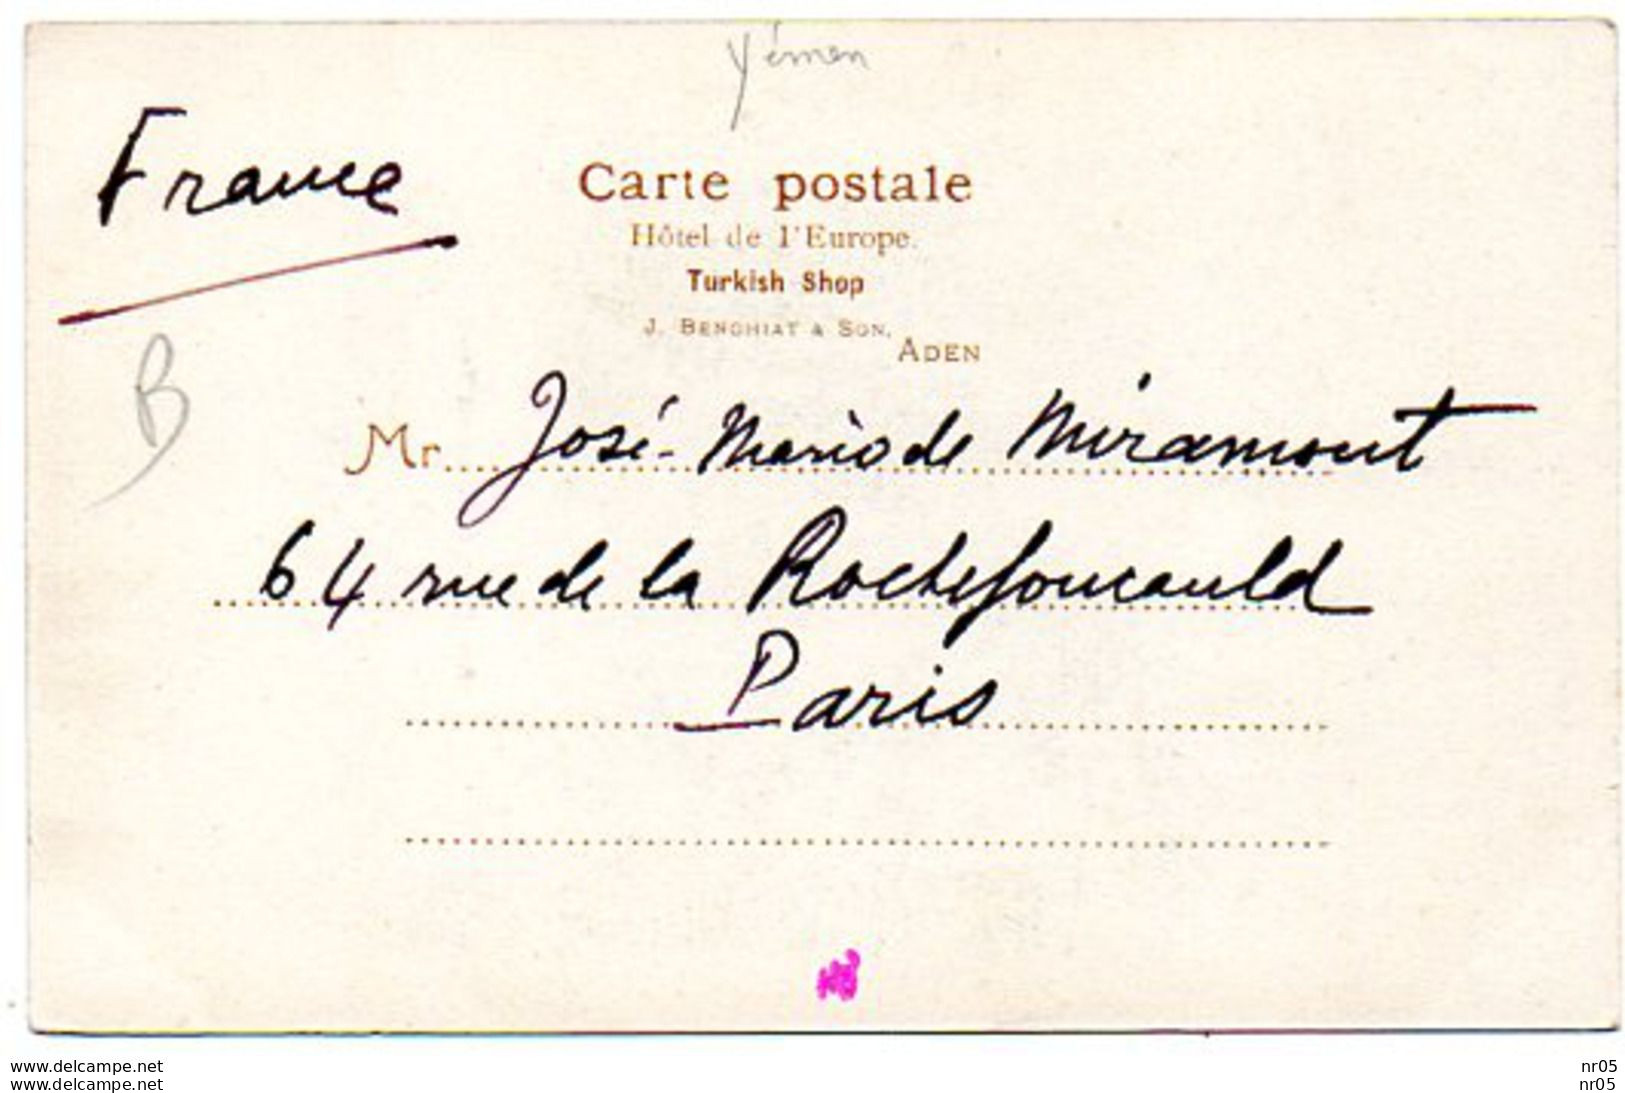 Yémen
France
Carte postale
Hôtel de l'Europe.
Turkish Shop
J. Benghiat & Son,
Aden
B
Mr José-Mario de Miramont
64 rue de la Rochefoucauld
Paris
www.delcampe.net
www.delcampe.net
nr05
nr05